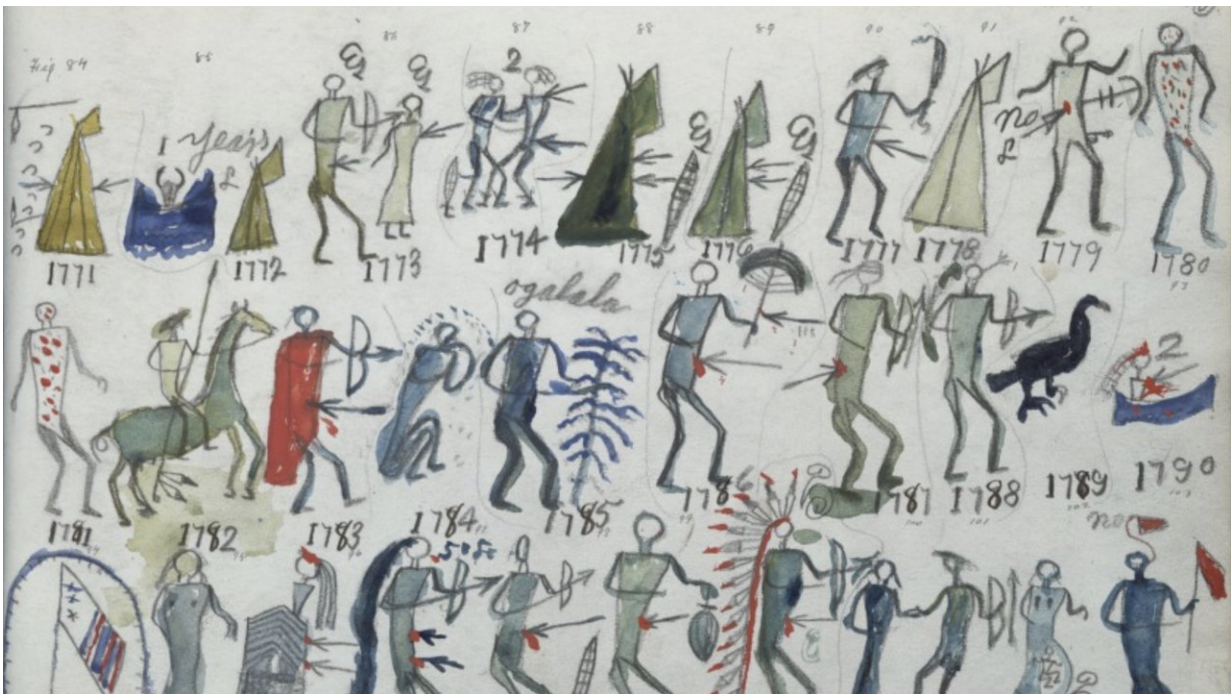 Fig 84 85 86 87 88 89 90 91 92
1 years
2
2
no
1771 1772 1773 1774 1775 1776 1777 1778 1779 1780
93
ogalala
2
1781 1782 1783 1784 1785 1786 1787 1788 1789 1790
99 100 101 102 103
no